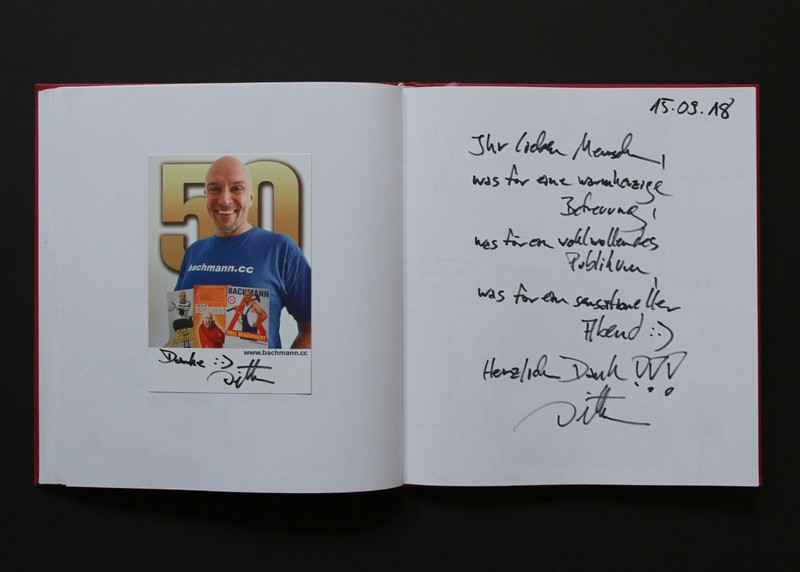 50
bachmann.cc
BACHMANN
bachmann
www.bachmann.cc
Danke :-)
15.09.18
Ihr lieben Menschen,
was für eine warmherzige
Betreuung,
was für ein wohlwollendes
Publikum,
was für ein sensationeller
Abend :-)
Herzlichen Dank !!!